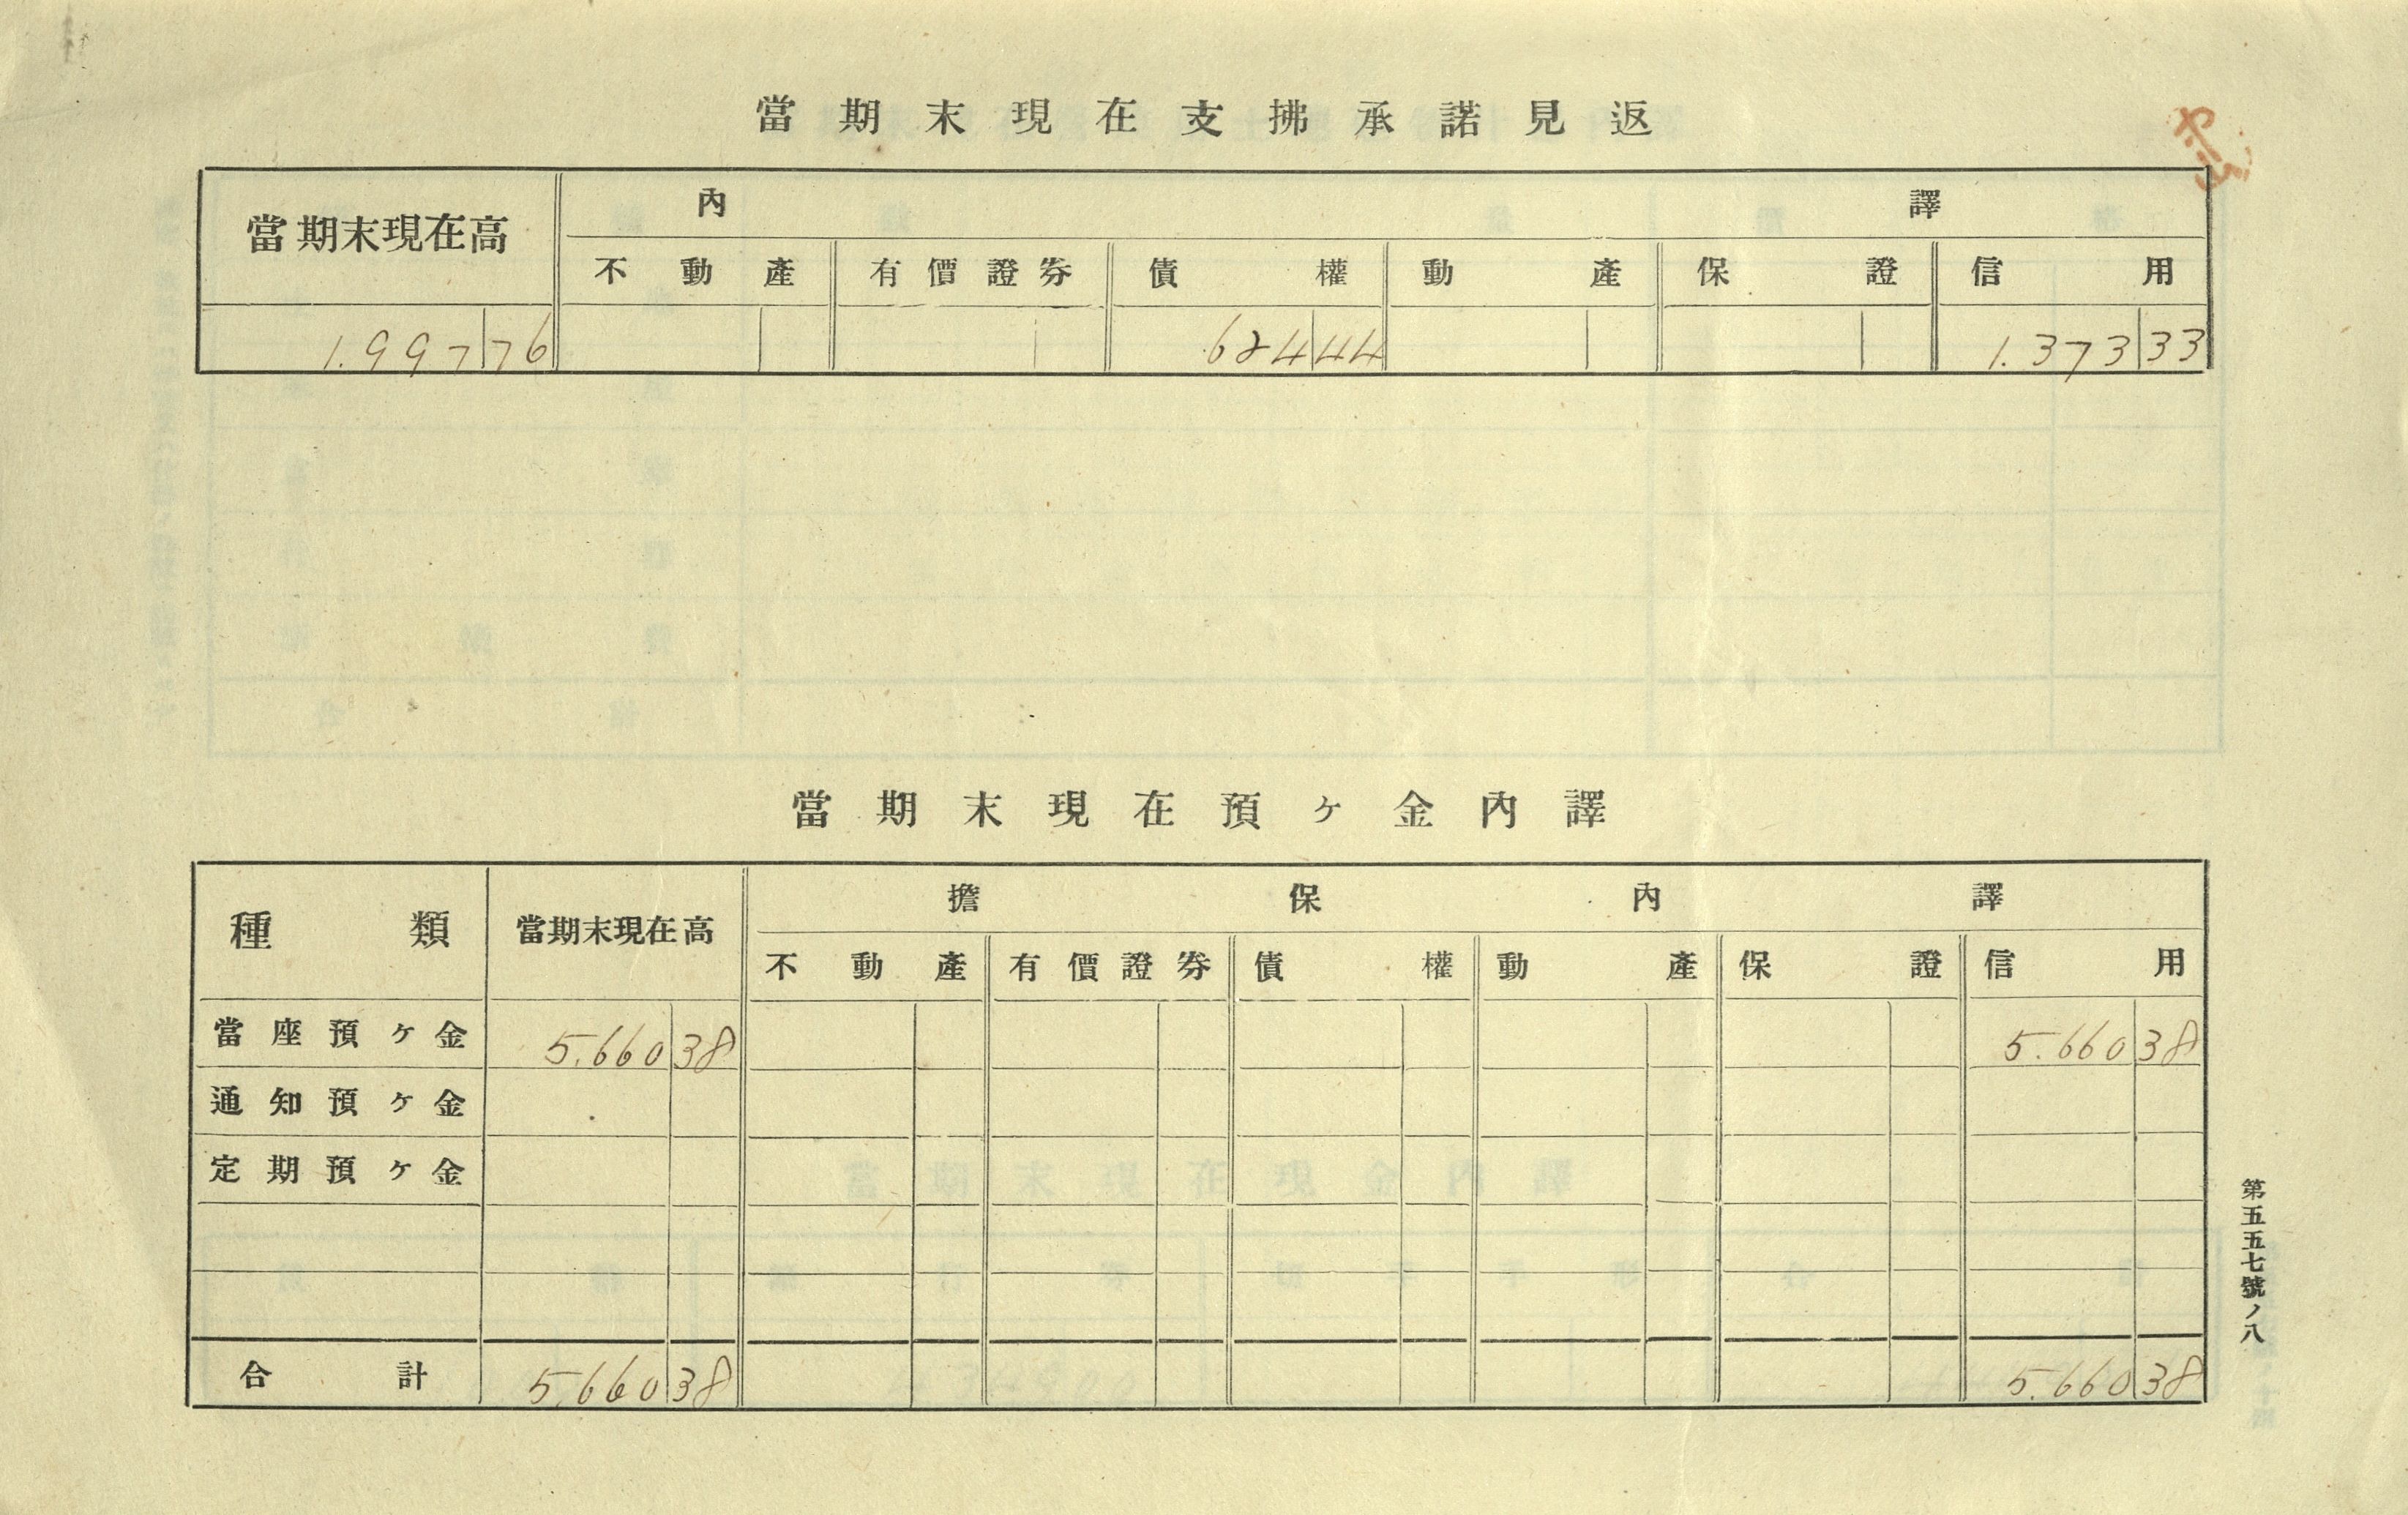 當期末現在支拂承諾見返
當期末現在高 內譯
不動產 有價證券 債權 動產 保證 信用
1.997 76 624 44 1.373 33
當期末現在預ヶ金內譯
種類 當期末現在高 擔保內譯
不動產 有價證券 債權 動產 保證 信用
當座預ヶ金 5.660 38 5.660 38
通知預ヶ金
定期預ヶ金
合計 5.660 38 5.660 38
第五五七號ノ八